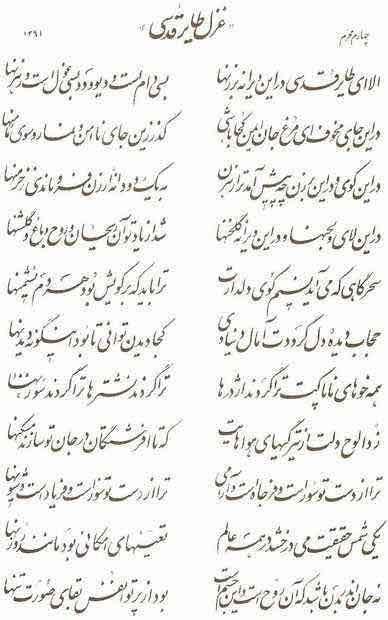 چهارم محرم غزل طایر قدسی ۱۳۶۱
الا ای طایر قدسی در این ویرانه برزنها بسی دام است و دیو و دد بسی غول است و رهزنها
در این جای مخوف ای مرغ جان ایمن کجا باشی گذر زین جای ناامن و نما رو سوی مأمنها
در این کوی و در این برزن چه پیش آمد ترا رهزن به یک دو دانهٔ ارزن فرو ماندی ز خرمنها
در این لای و لجنها و در این ویرانه گلخنها شد از یاد تو آن ریحان و روح باغ و گلشنها
سحرگاهی که می آید نسیم کوی دلدارت ترا باید که بر کویش بود هر دم نشیمنها
حجاب دیدهٔ دل گرددت آمال دنیاوی کجا دیدن توانی تا بود اینگونه دیدنها
همه خوهای ناپاکت ترا گردند اژدرها ترا گردند نشترها ترا گردند سوزنها
زدا لوح دلت از تیرگیهای هواهایت که تا افرشتگان در جان تو سازند مسکنها
ترا از دست تو نور است و فرجام است و آرامی ترا از دست تو سوز است و فریاد است و شیونها
یکی شمس حقیقت می درخشد در همه عالم تعینهای امکانی بود مانند روزنها
نه جان اندر بدن باشد که آن روح است و این جسم است بود از پرتو نفس بقای صورت تنها